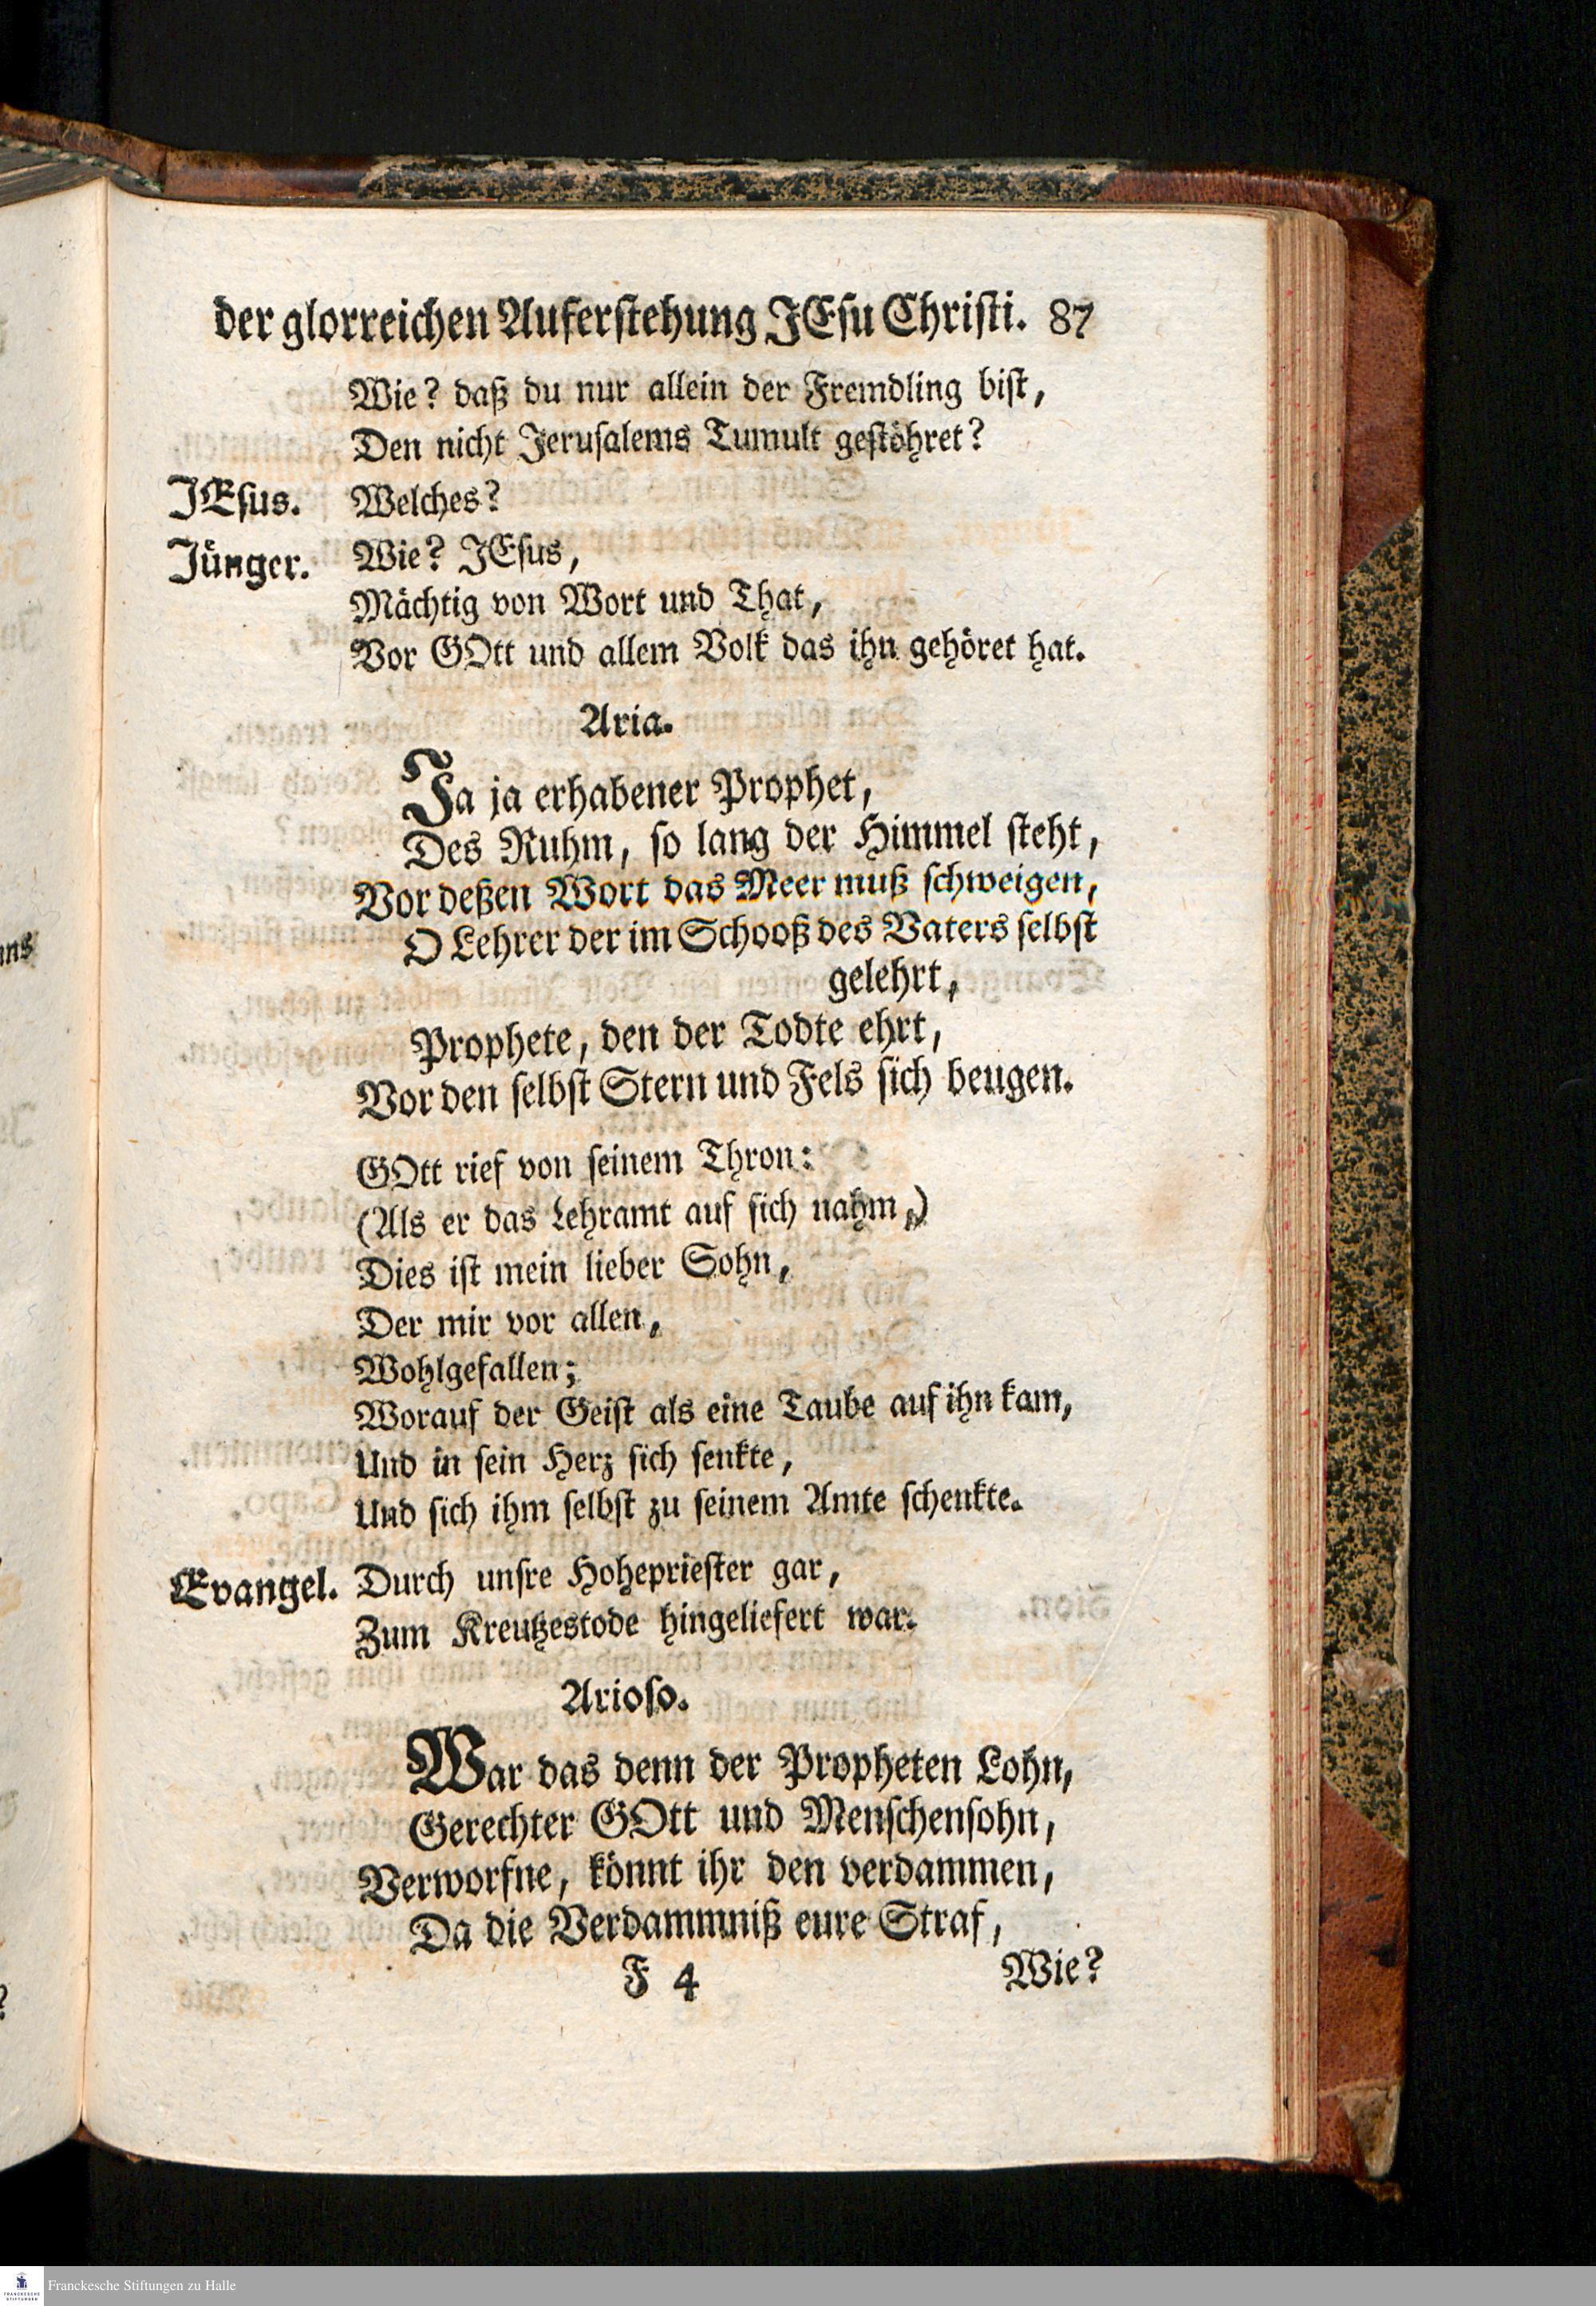 der glorreichen Auferstehung JEsu Christi. 87
Wie? daß du nur allein der Fremdling bist,
Den nicht Jerusalems Tumult gestöhret?
JEsus. Welches?
Jünger. Wie? JEsus,
Mächtig von Wort und That,
Vor GOtt und allem Volk das ihn gehöret hat.
Aria.
Ja ja erhabener Prophet,
Des Ruhm, so lang der Himmel steht,
Vor deßen Wort das Meer muß schweigen,
O Lehrer der im Schooß des Vaters selbst
gelehrt,
Prophete, den der Todte ehrt,
Vor den selbst Stern und Fels sich beugen.
GOtt rief von seinem Thron:
(Als er das Lehramt auf sich nahm,)
Dies ist mein lieber Sohn,
Der mir vor allen,
Wohlgefallen;
Worauf der Geist als eine Taube auf ihn kam,
Und in sein Herz sich senkte,
Und sich ihm selbst zu seinem Amte schenkte.
Evangel. Durch unsre Hohepriester gar,
Zum Kreutzestode hingeliefert war.
Arioso.
War das denn der Propheten Lohn,
Gerechter GOtt und Menschensohn,
Verworfne, könnt ihr den verdammen,
Da die Verdammniß eure Straf,
F 4 Wie?
Franckesche Stiftungen zu Halle